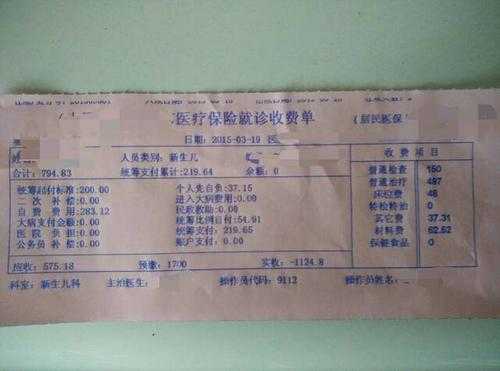 医疗保险就诊收费单 (居民医保
日期: 2015-03-19
人员类别: 新生儿 收 费 项 目
合计: 794.83 统筹支付累计: 219.64 余额: 0
统筹起付标准: 200.00 个人先自负: 37.15 普通检查 150
二 次 补 偿: 0.00 进入大病费用: 0.00 普通治疗 497
自 费 费 用: 283.12 民政救助: 0.00 床位费 48
大病支付金额: 0.00 统筹比例自付: 54.91
医 院 负 担: 0.00 统筹支付: 219.65 其它费 37.31
公务员 补 偿: 0.00 帐户支付: 0.00 材料费 62.52
保健食品 0
应收: 575.18 预缴: 1700 实收: -1124.8
科室: 新生儿科 主治医生: 操作员代码: 9112 操作员姓名: